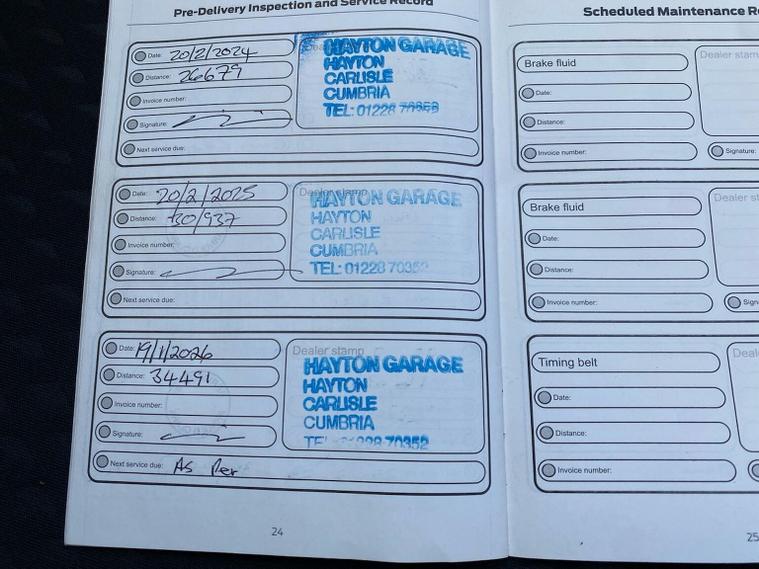 Pre-Delivery Inspection and Service Record
Date: 20/2/2024
Distance: 26679
Invoice number:
Signature:
Next service due:
HAYTON GARAGE
HAYTON
CARLISLE
CUMBRIA
TEL: 01228 70352
Date: 20/2/2025
Distance: 30/937
Invoice number:
Signature:
Next service due:
Dealer stamp
HAYTON GARAGE
HAYTON
CARLISLE
CUMBRIA
TEL: 01228 70352
Date: 19/1/2026
Distance: 34491
Invoice number:
Signature:
Next service due: As Per
Dealer stamp
HAYTON GARAGE
HAYTON
CARLISLE
CUMBRIA
01228 70352
24
Scheduled Maintenance Re
Brake fluid
Date:
Distance:
Invoice number:
Dealer stamp
Signature:
Brake fluid
Date:
Distance:
Invoice number:
Dealer st
Sign
Timing belt
Date:
Distance:
Invoice number:
Deal
25